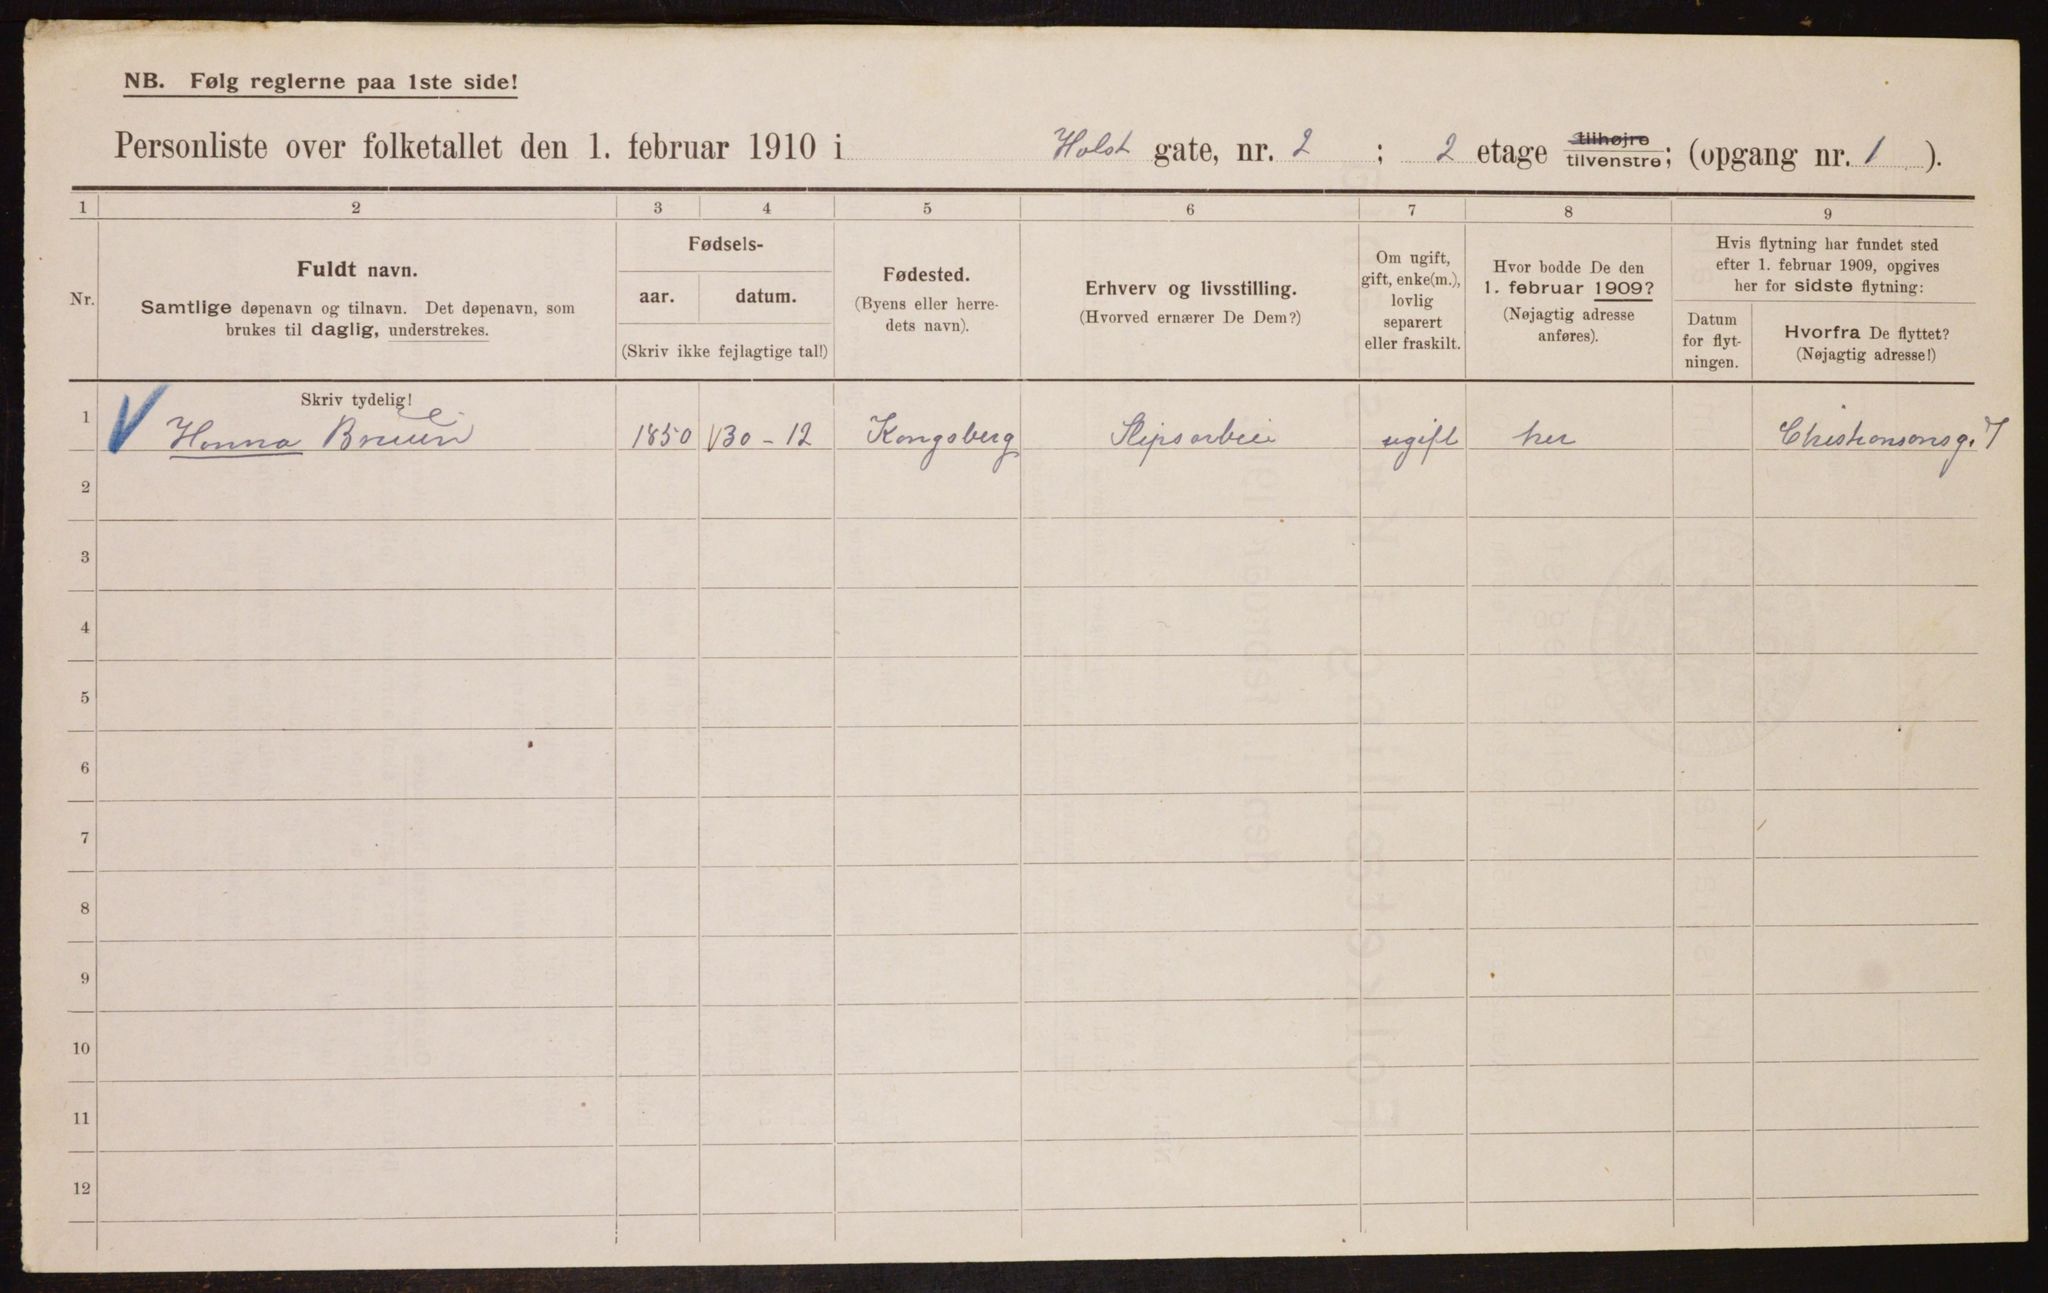 NB. Følg reglerne paa 1ste side!
Personliste over folketallet den 1. februar 1910 i Holst gate, nr. 2 ; 2 etage tilhøjre tilvenstre; (opgang nr. 1 ).
1 2 3 4 5 6 7 8 9
Nr.
Fuldt navn.
Samtlige døpenavn og tilnavn. Det døpenavn, som
brukes til daglig, understrekes.
Fødsels-
aar. datum.
(Skriv ikke fejlagtige tal!)
Fødested.
(Byens eller herre-
dets navn).
Erhverv og livsstilling.
(Hvorved ernærer De Dem?)
Om ugift,
gift, enke(m.),
lovlig
separert
eller fraskilt.
Hvor bodde De den
1. februar 1909?
(Nøjagtig adresse
anføres).
Hvis flytning har fundet sted
efter 1. februar 1909, opgives
her for sidste flytning:
Datum
for flyt-
ningen.
Hvorfra De flyttet?
(Nøjagtig adresse!)
Skriv tydelig!
1 Hanna Bruun 1850 30-12 Kongsberg ugift her 7
2
3
4
5
6
7
8
9
10
11
12